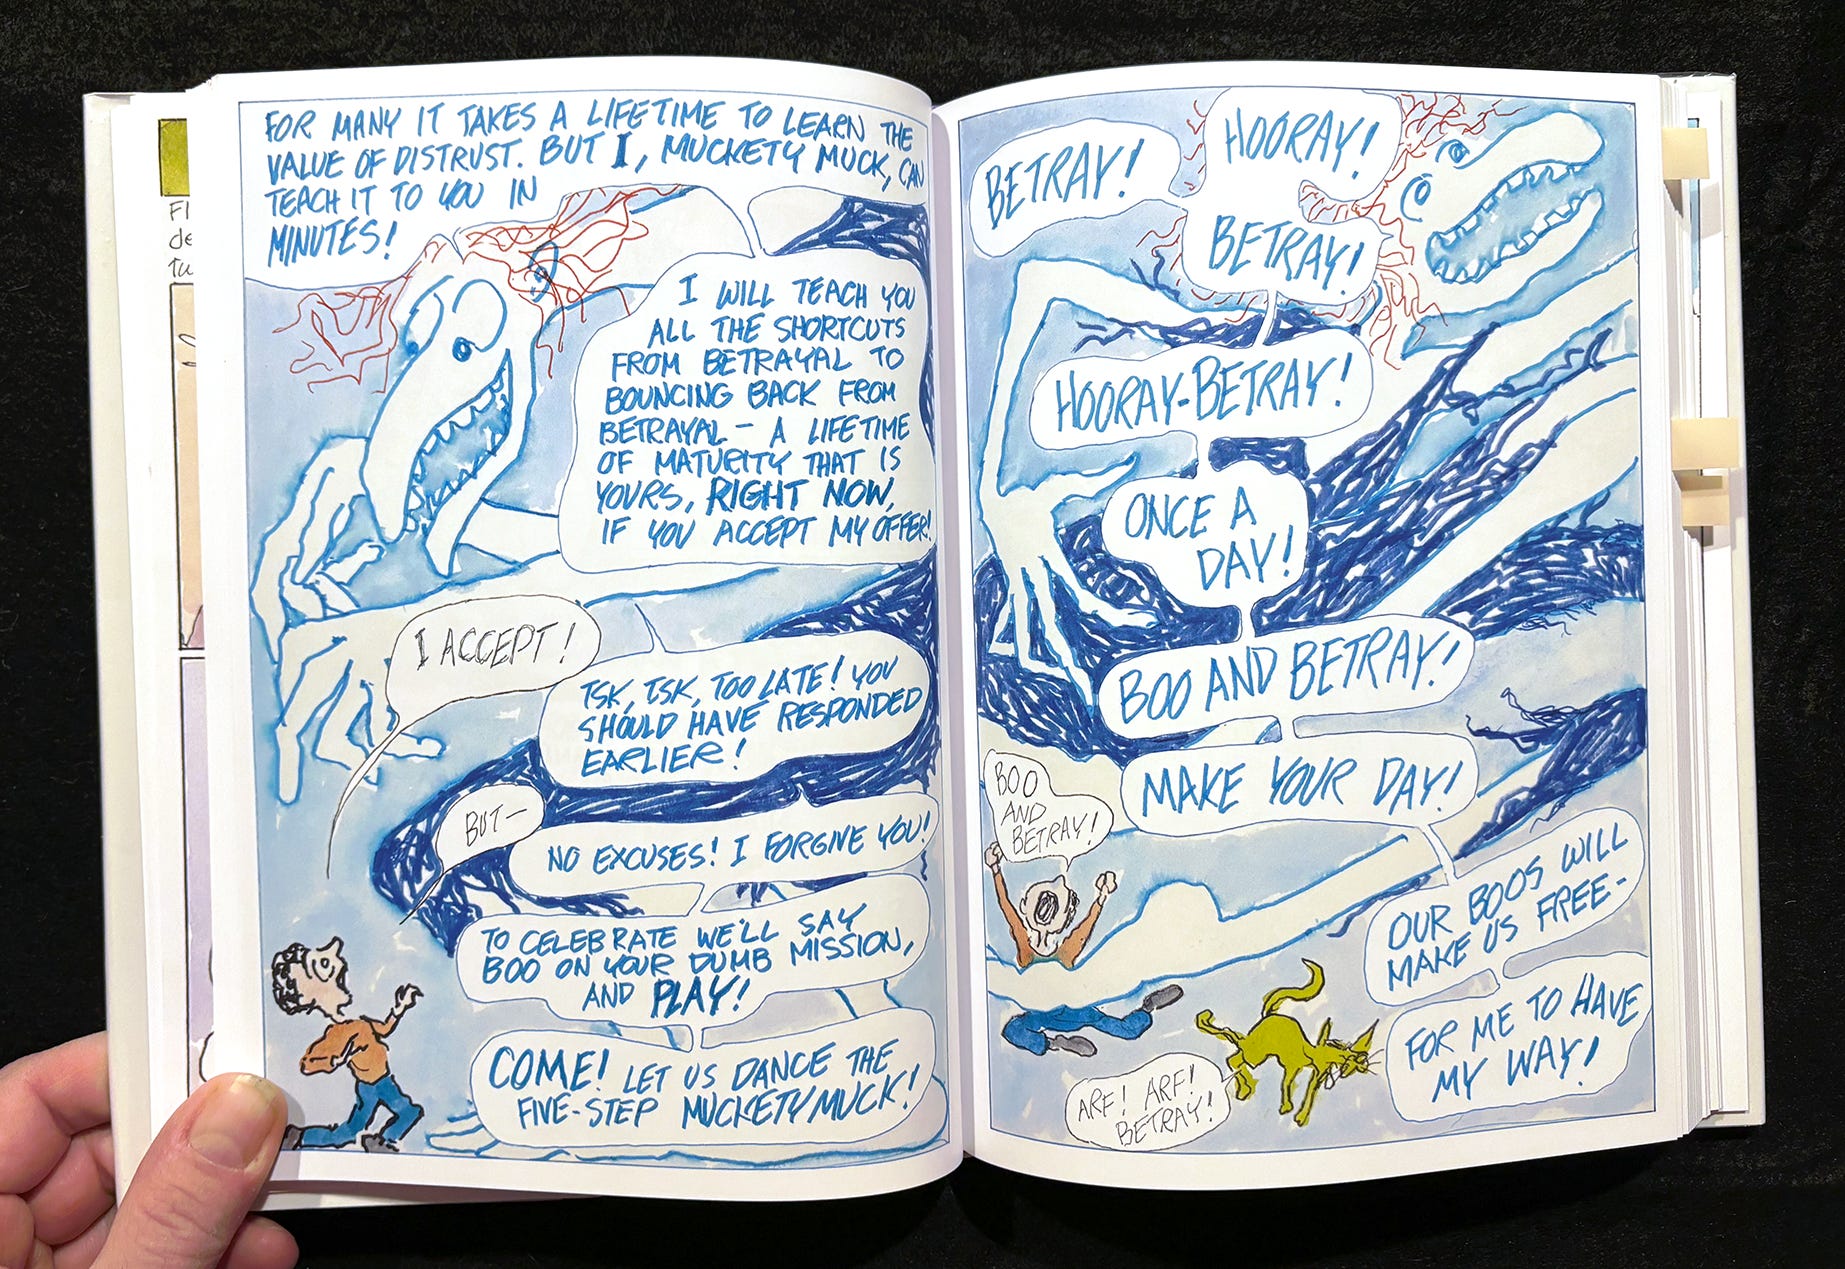 Fl
de
tu
FOR MANY IT TAKES A LIFETIME TO LEARN THE
VALUE OF DISTRUST. BUT I, MUCKETY MUCK, CAN
TEACH IT TO YOU IN
MINUTES!
I WILL TEACH YOU
ALL THE SHORTCUTS
FROM BETRAYAL TO
BOUNCING BACK FROM
BETRAYAL — A LIFETIME
OF MATURITY THAT IS
YOURS, RIGHT NOW,
IF YOU ACCEPT MY OFFER!
I ACCEPT!
TSK, TSK, TOO LATE! YOU
SHOULD HAVE RESPONDED
EARLIER!
BUT—
NO EXCUSES! I FORGIVE YOU!
TO CELEBRATE WE'LL SAY
BOO ON YOUR DUMB MISSION,
AND PLAY!
COME! LET US DANCE THE
FIVE-STEP MUCKETYMUCK!
BETRAY!
HOORAY!
BETRAY!
HOORAY-BETRAY!
ONCE A
DAY!
BOO AND BETRAY!
MAKE YOUR DAY!
BOO
AND
BETRAY!
OUR BOOS WILL
MAKE US FREE-
FOR ME TO HAVE
MY WAY!
ARF! ARF!
BETRAY!